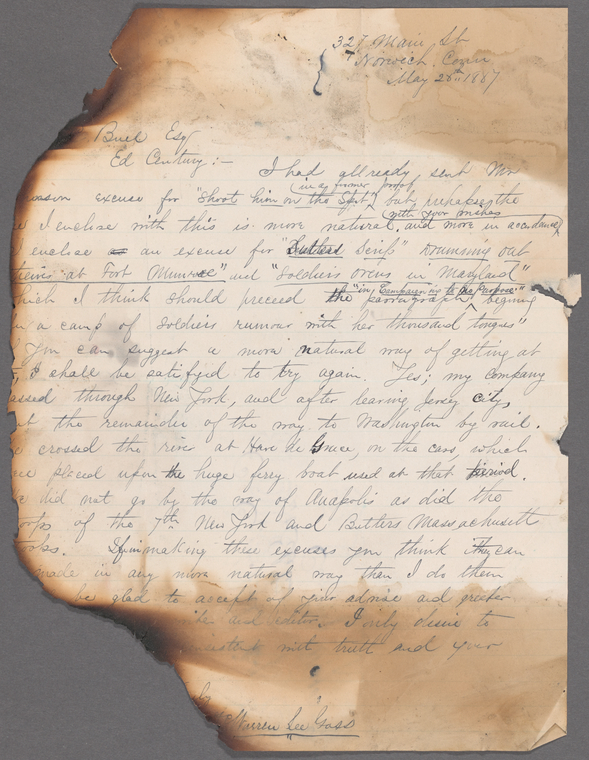 327 Main St
Norwich Conn
May 28th 1887
Buel Esq
Ed Century:—
I had allready sent Mr
excuse for "Shoot him on the Spot" but prehapse the
in a former proof
I enclose with this is more natural and more in accordance
with your wishes
enclose an excuse for "Butlers Drumming out
at Fort Munroe" and "Soldiers in Maryland"
which I think should preceed the paragraph begining
"in Campaigning to no Purpose"
in a camp of soldiers rumour with her thousand tongues"
you can suggest a more natural way of getting at
I shall be satisfyed to try again. Yes; my company
passed through New York, and after leaving Jersey city,
the remainder of the way to Washington by rail.
crossed the river at Havre de Grace, on the cars, which
were placed upon the huge ferry boat used at that period.
We did not go by the way of Anapolis as did the
of the 7th New York and Butlers Massachusett
If in making these excuses you think they can
made in any more natural way than I do them
be glad to accept of your advise and
and editor. I only desire to
with truth and your
Warren Lee Goss